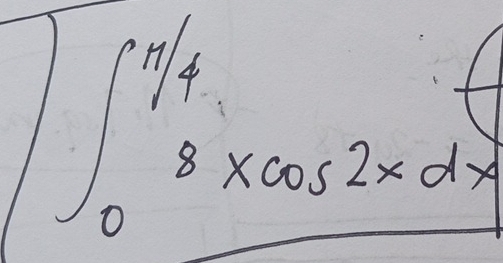 ∫₀^{π/4} 8 x cos 2x dx